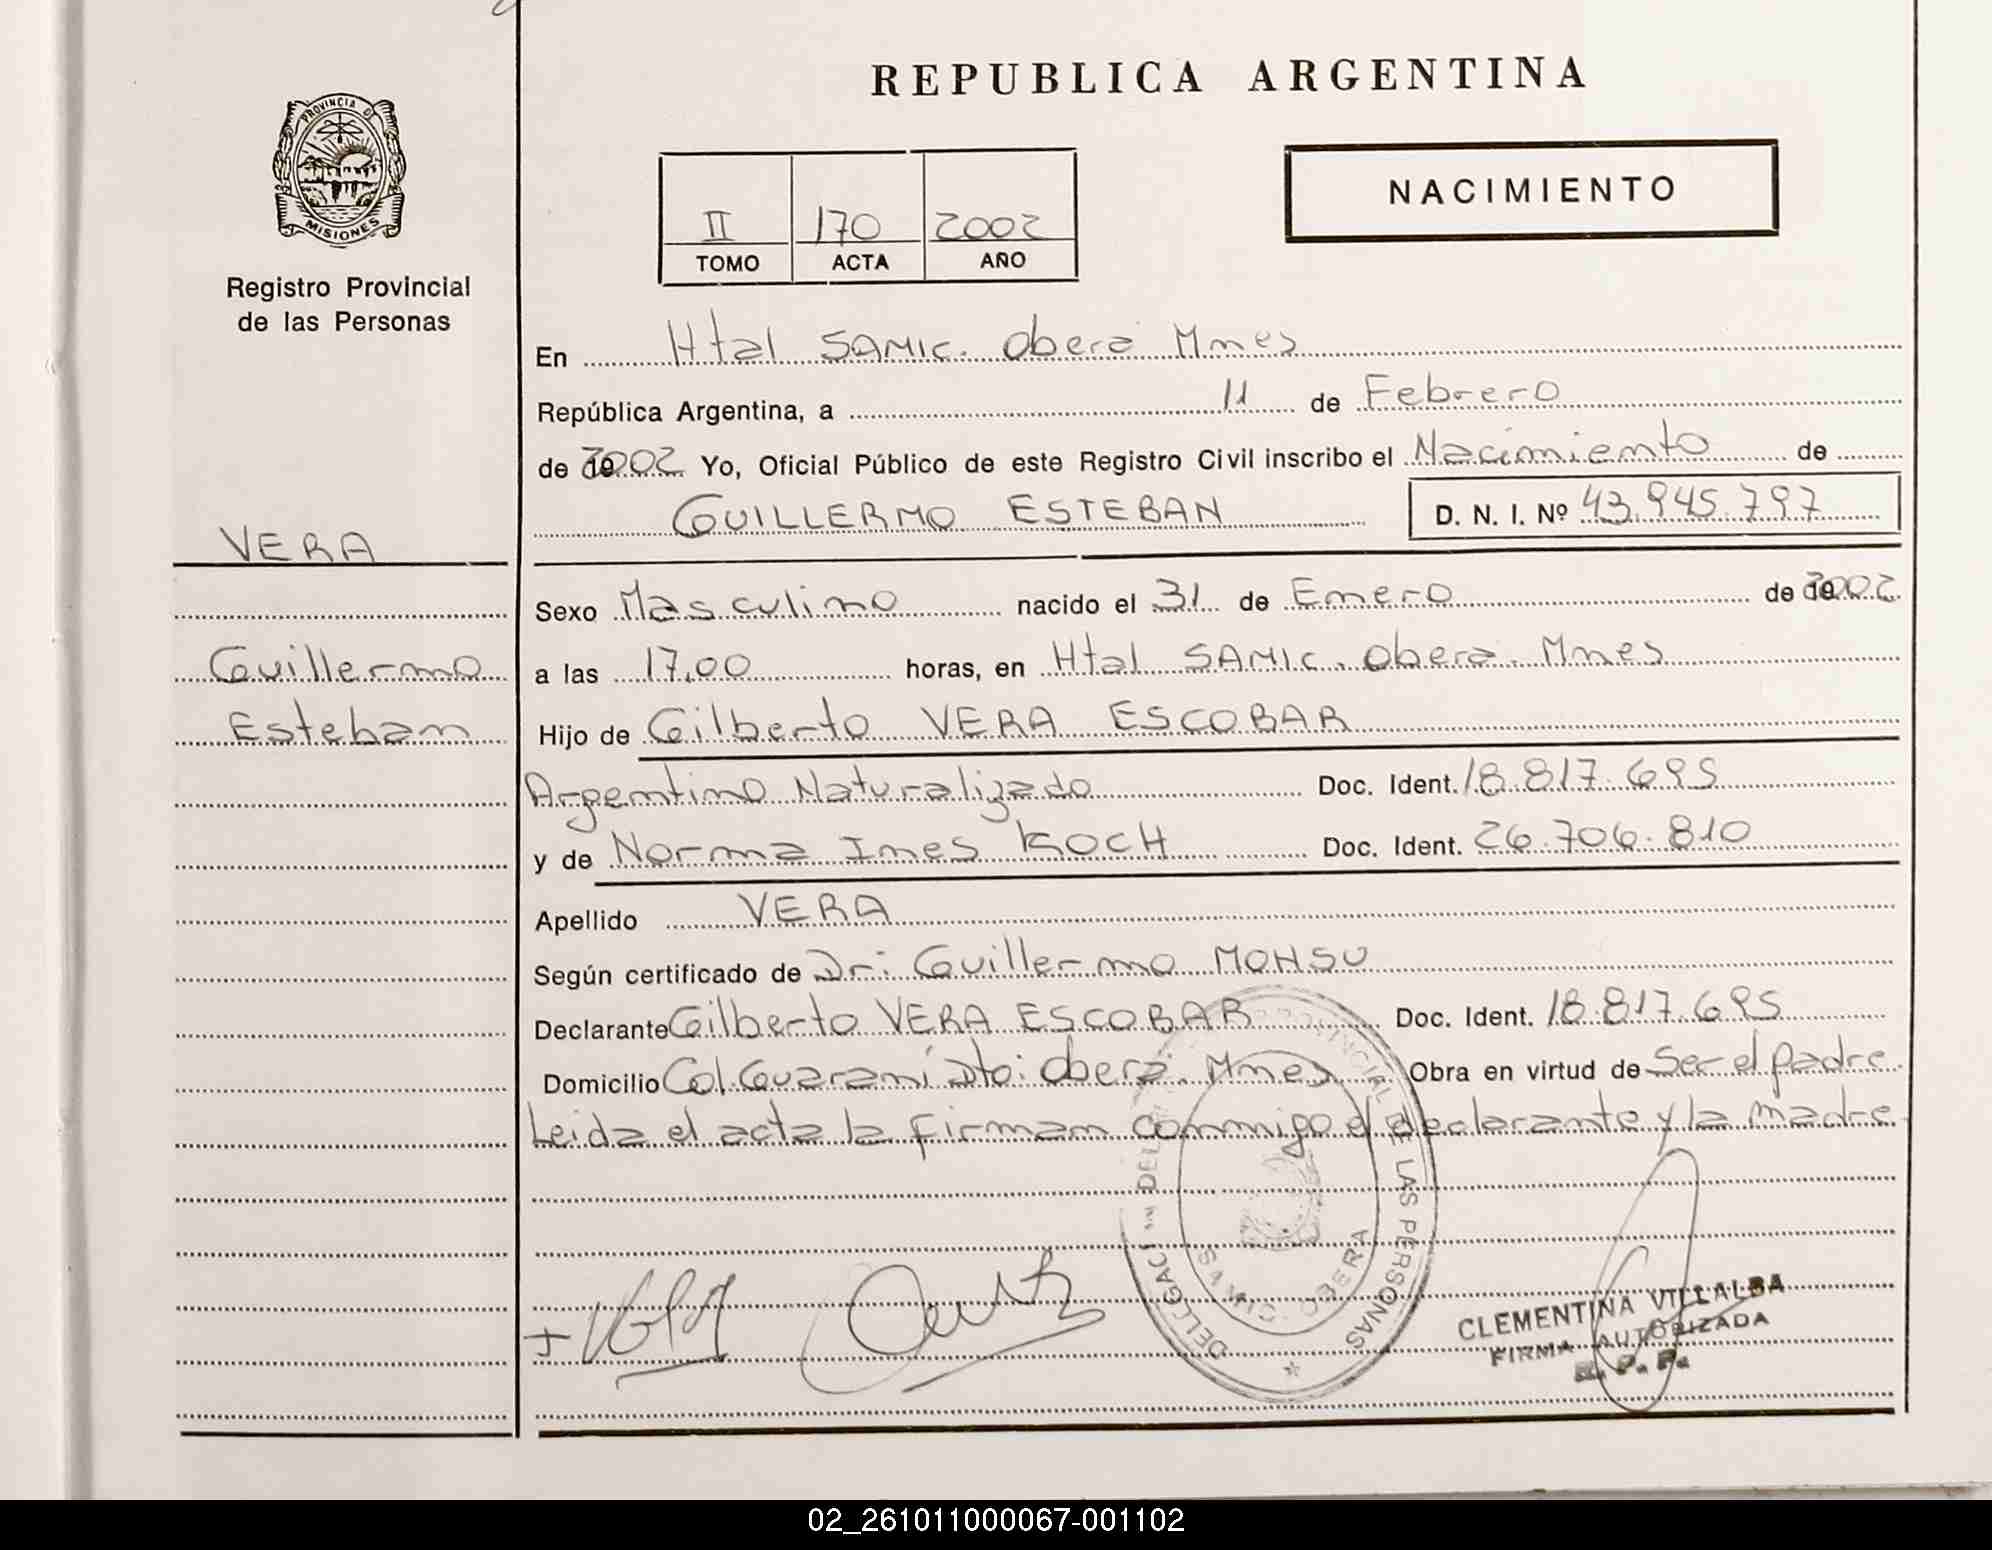 REPUBLICA ARGENTINA
PROVINCIA DE
MISIONES
Registro Provincial
de las Personas
NACIMIENTO
II 170 2002
TOMO ACTA AÑO
En Htal SAMIC. Oberá Mnes
República Argentina, a 11 de Febrero
de 2002 Yo, Oficial Público de este Registro Civil inscribo el Nacimiento de
GUILLERMO ESTEBAN D. N. I. Nº 43.945.797
VERA
Guillermo
Esteban
Sexo Masculino nacido el 31 de Enero de 2002.
a las 17,00 horas, en Htal SAMIC. Oberá. Mnes
Hijo de Gilberto VERA ESCOBAR
Argentino Naturalizado Doc. Ident. 18.817.695
y de Norma Ines KOCH Doc. Ident. 26.706.810
Apellido VERA
Según certificado de Dr: Guillermo MOHSU
Declarante Gilberto VERA ESCOBAR Doc. Ident. 18.817.695
Domicilio Col. Guaraní Dto: Oberá. Mnes Obra en virtud de Ser el padre.
Leida el acta la firman conmigo el declarante y la madre.
PROVINCIAL DE LAS PERSONAS
SAMIC OBERA
CLEMENTINA VILLALBA
FIRMA AUTORIZADA
R. P. P.
02_261011000067-001102